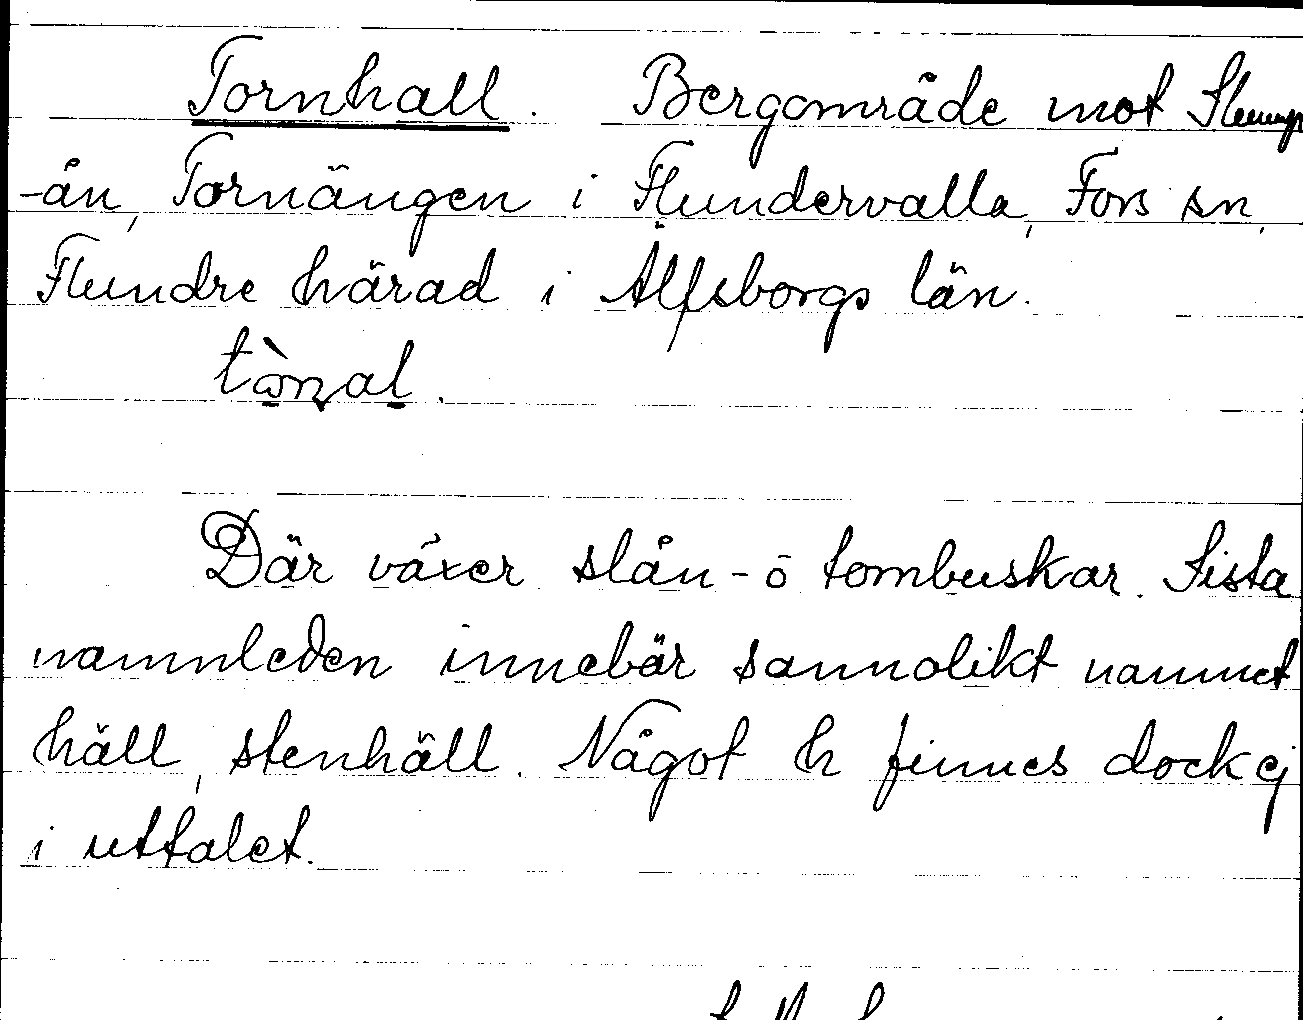 Tornhall. Bergområde mot Slump
-ån, Tornängen i Flundervalla, Fors sn,
Flundre härad i Älfsborgs län.
Där växer slån- o tornbuskar. Sista
namnleden innebär sannolikt namnet
häll, stenhäll. Något h finnes dock ej
i uttalet.